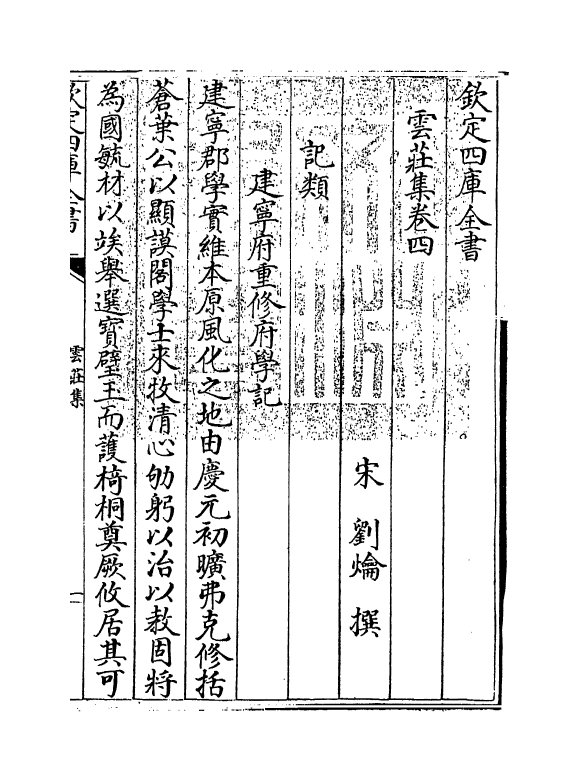 欽定四庫全書
雲莊集卷四
宋 劉爚 撰
記類
建寧府重修府學記
建寧郡學實維本原風化之地由慶元初曠弗克修括
蒼葉公以顯謨閣學士來牧清心劬躬以治以教固將
為國毓材以竢舉選寶璧玉而護椅桐奠厥攸居其可
欽定四庫全書
雲莊集
一